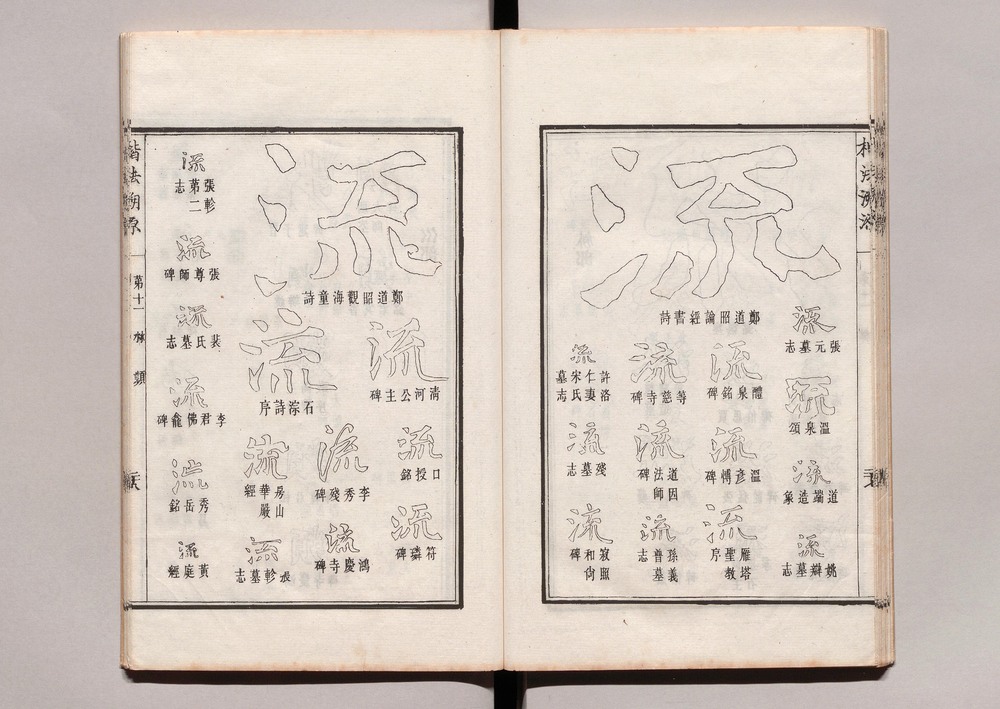 流
鄭道昭論經書詩
流
張元墓志
流
溫泉頌
流
道端造象
流
姚辯墓志
流
醴泉銘碑
流
溫彥博碑
流
雁塔聖教序
流
等慈寺碑
流
道因法師碑
流
孫義普墓志
流
許洛仁妻宋氏墓志
流
殘墓志
流
寂照和尙碑
流
鄭道昭觀海童詩
流
清河公主碑
流
口授銘
流
符璘碑
流
石淙詩序
流
李秀殘碑
流
鴻慶寺碑
流
房山華嚴經
流
張軫墓志
流
張軫第二志
流
張尊師碑
流
裴氏墓志
流
李君佛龕碑
流
秀岳銘
流
黃庭經
楷法溯原
第十一
類